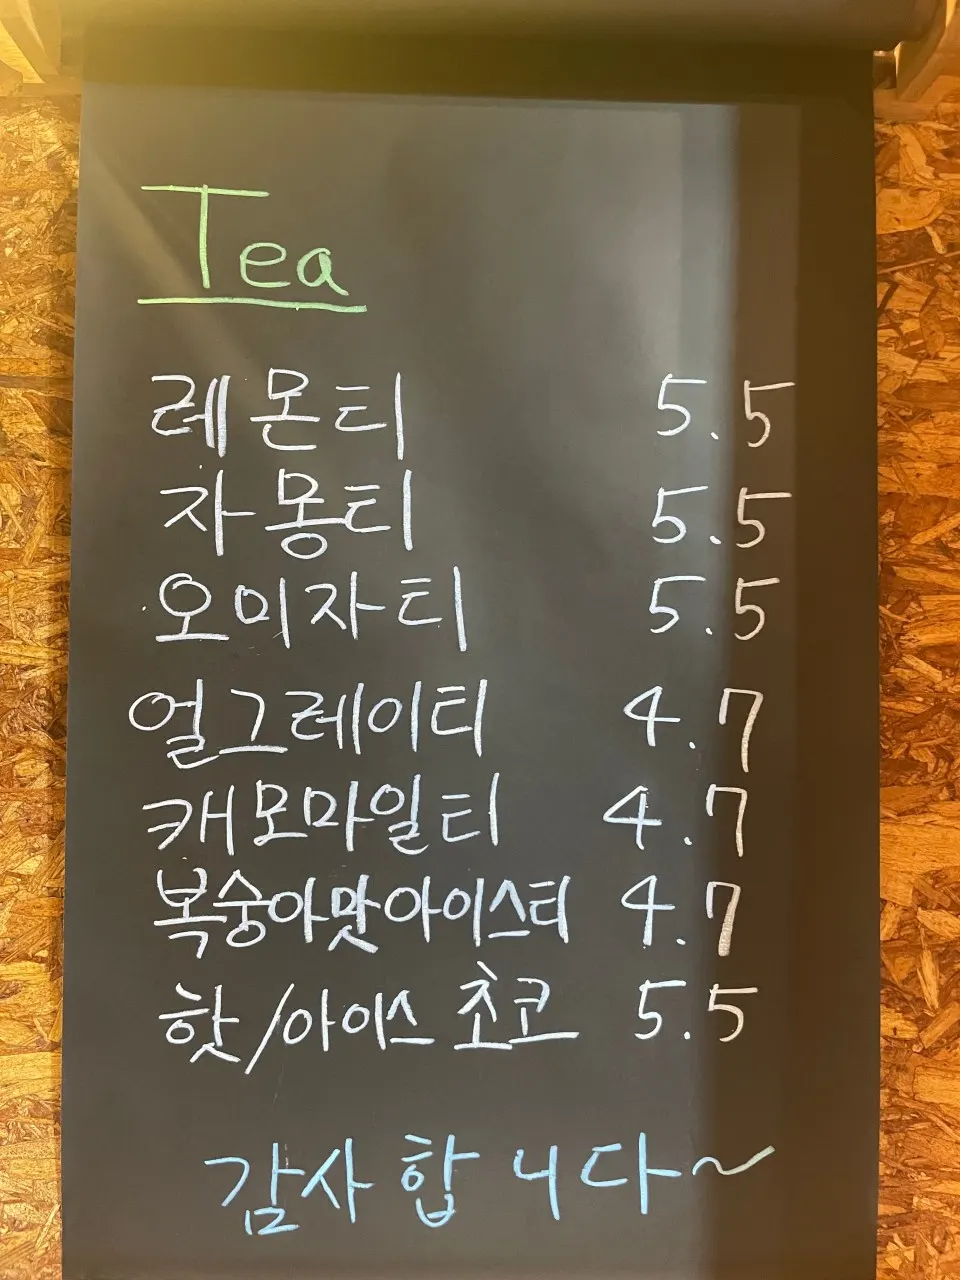 Tea
레몬티 5.5
자몽티 5.5
오미자티 5.5
얼그레이티 4.7
캐모마일티 4.7
복숭아맛아이스티 4.7
핫/아이스 초코 5.5
감사합니다~